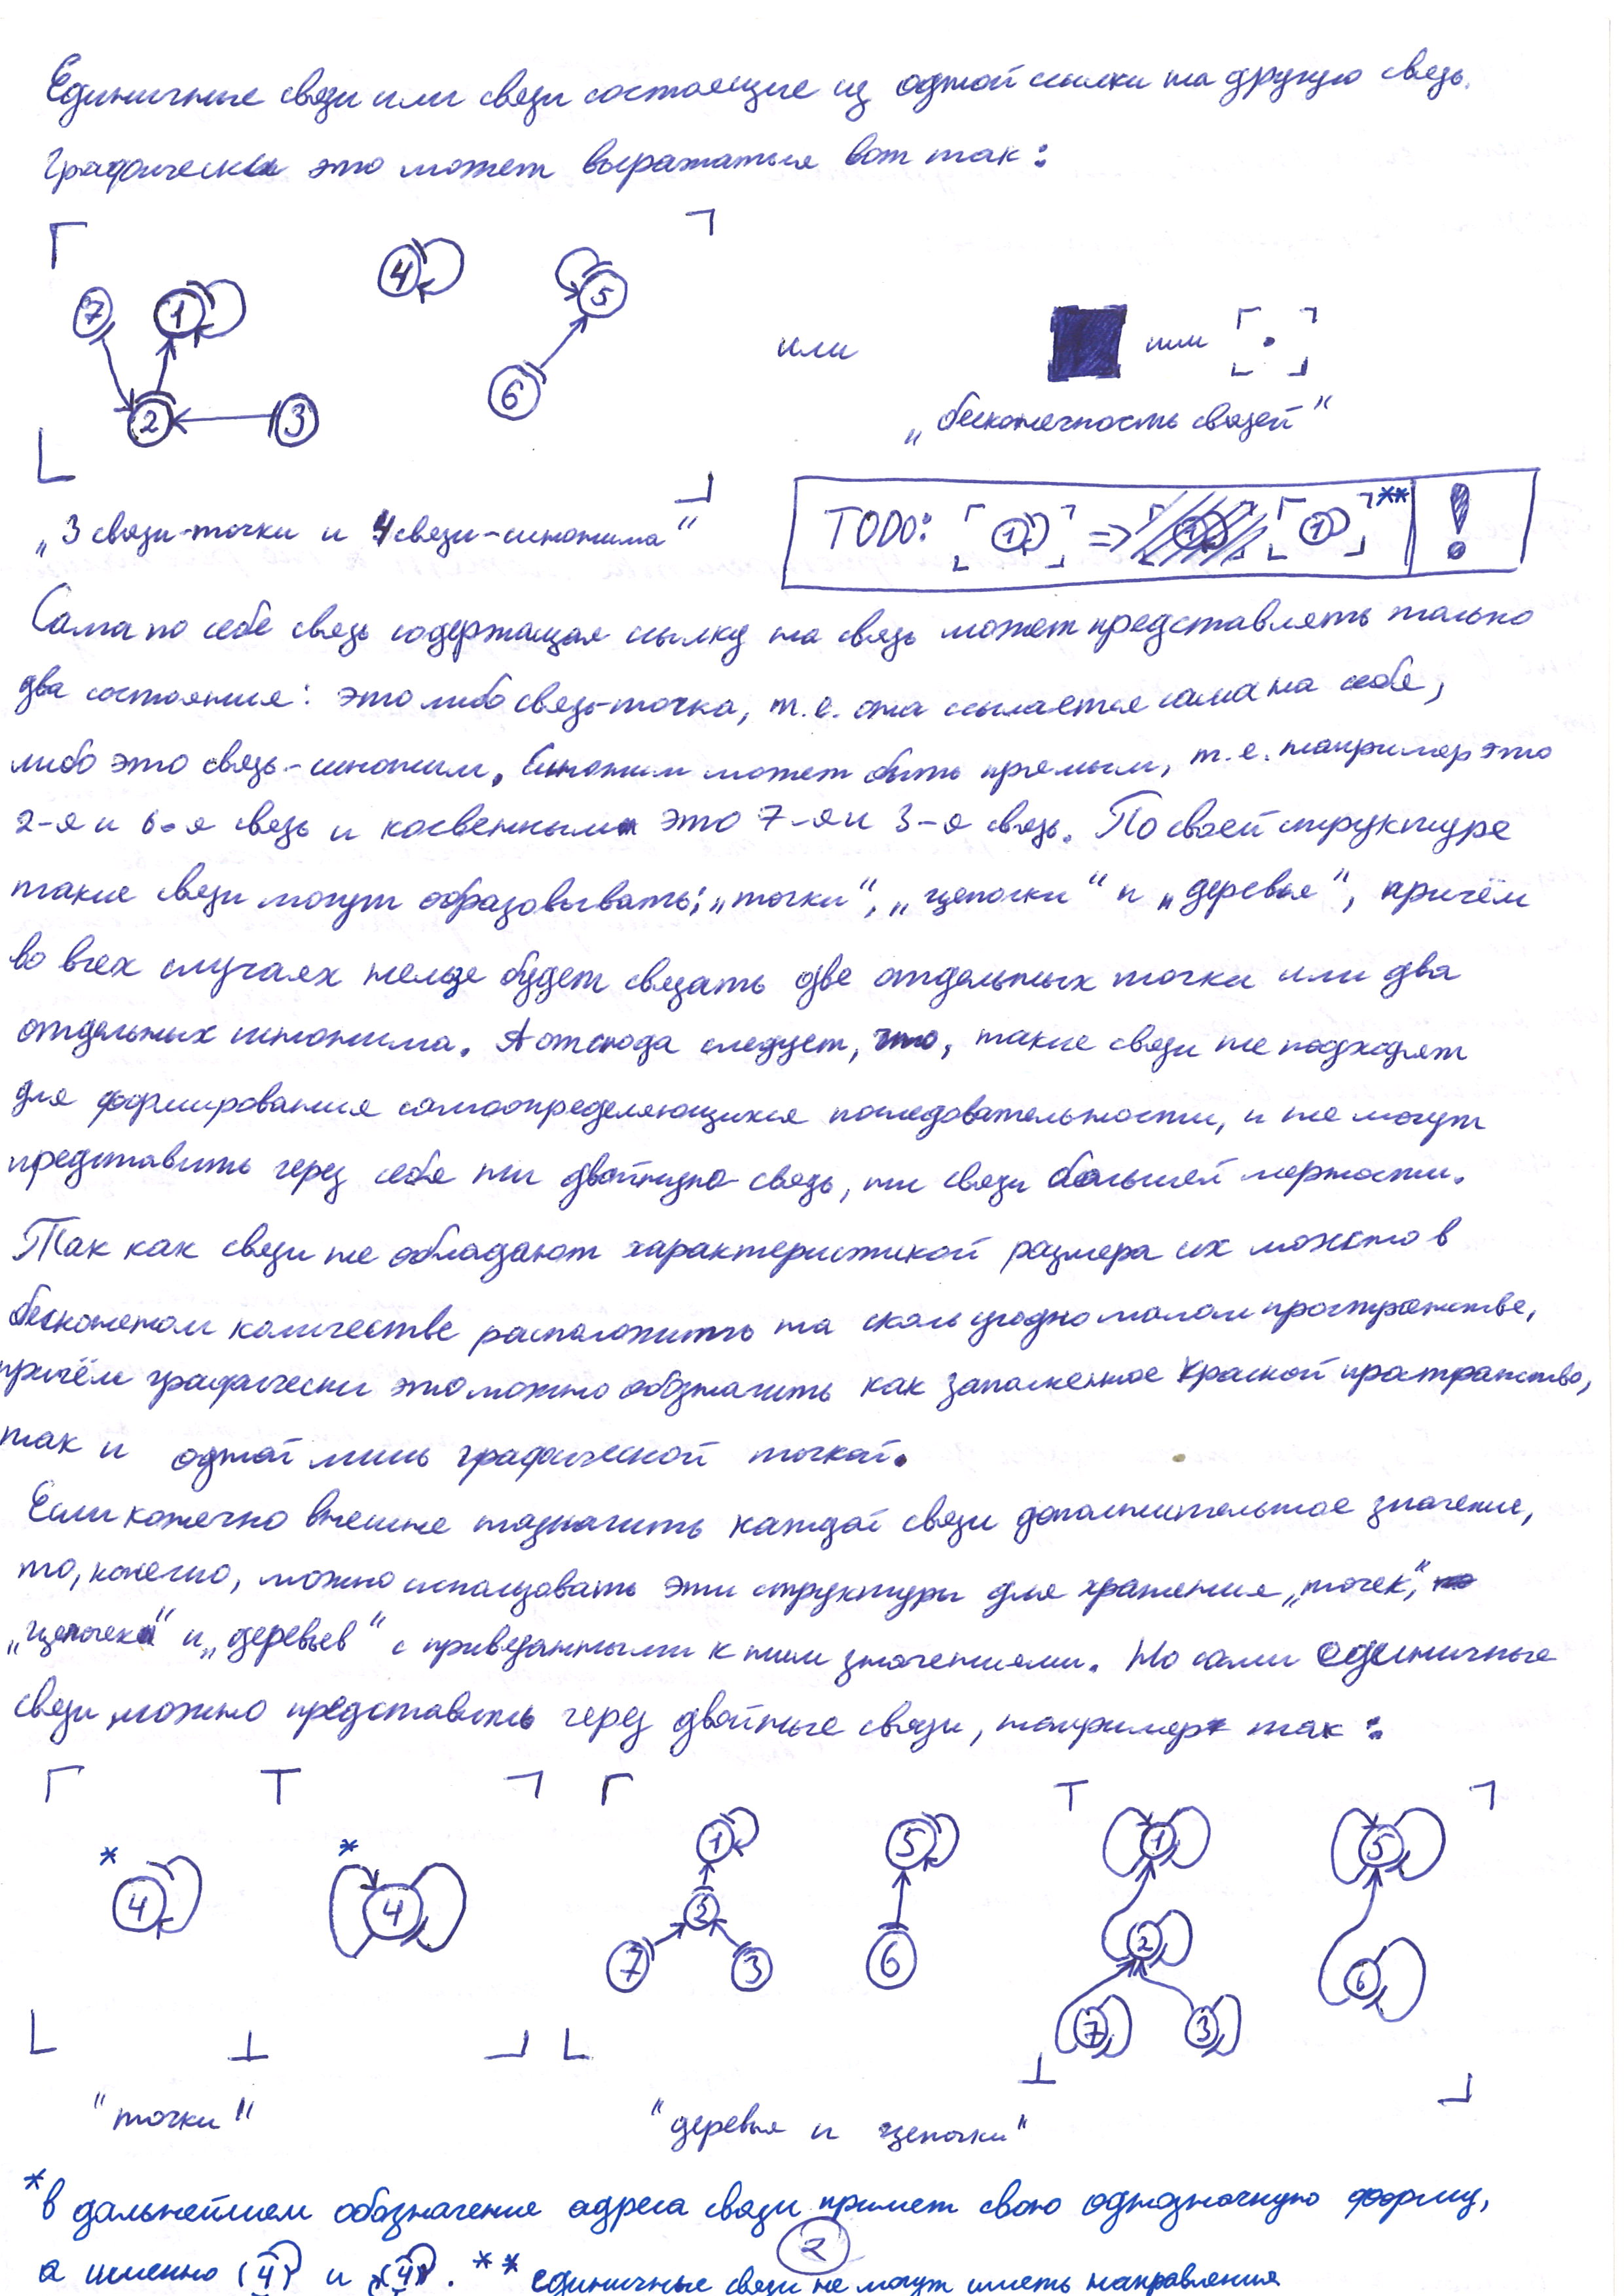 Единичные связи или связи состоящие из одной ссылки на другую связь.
Графически это может выражаться вот так:
7 1 4 5
или
или
2 3 6
„бесконечность связей“
„3 связи-точки и 4 связи-синонима“
TODO: 1 => 1 1 ** !
Сама по себе связь содержащая ссылку на связь может представлять только
два состояния: это либо связь-точка, т.е. она ссылается сама на себя,
либо это связь-синоним. Синоним может быть прямым, т.е. например это
2-я и 6-я связь и косвенным это 7-я и 3-я связь. По своей структуре
такие связи могут образовывать: „точки“, „цепочки“ и „деревья“, причём
во всех случаях нельзя будет связать две отдельных точки или два
отдельных синонима. А отсюда следует, что, такие связи не подходят
для формирования самоопределяющихся последовательности, и не могут
представить через себя ни двойную связь, ни связи большей мерности.
Так как связи не обладают характеристикой размера их можно в
бесконечном количестве расположить на сколь угодно малом пространстве,
причём графически это можно обозначить как заполненное краской пространство,
так и одной лишь графической точкой.
Если конечно внешне назначить каждой связи дополнительное значение,
то, конечно, можно использовать эти структуры для хранения „точек“,
„цепочек“ и „деревьев“ с привязанными к ним значениями. Но сами единичные
связи можно представить через двойные связи, например так:
* 4 * 4 1 5 1 5
2 2
7 3 6 6
7 3
"точки"
"деревья и цепочки"
* в дальнейшем обозначение адреса связи примет свою однозначную форму,
2
а именно (4) и (4). ** единичные связи не могут иметь направления